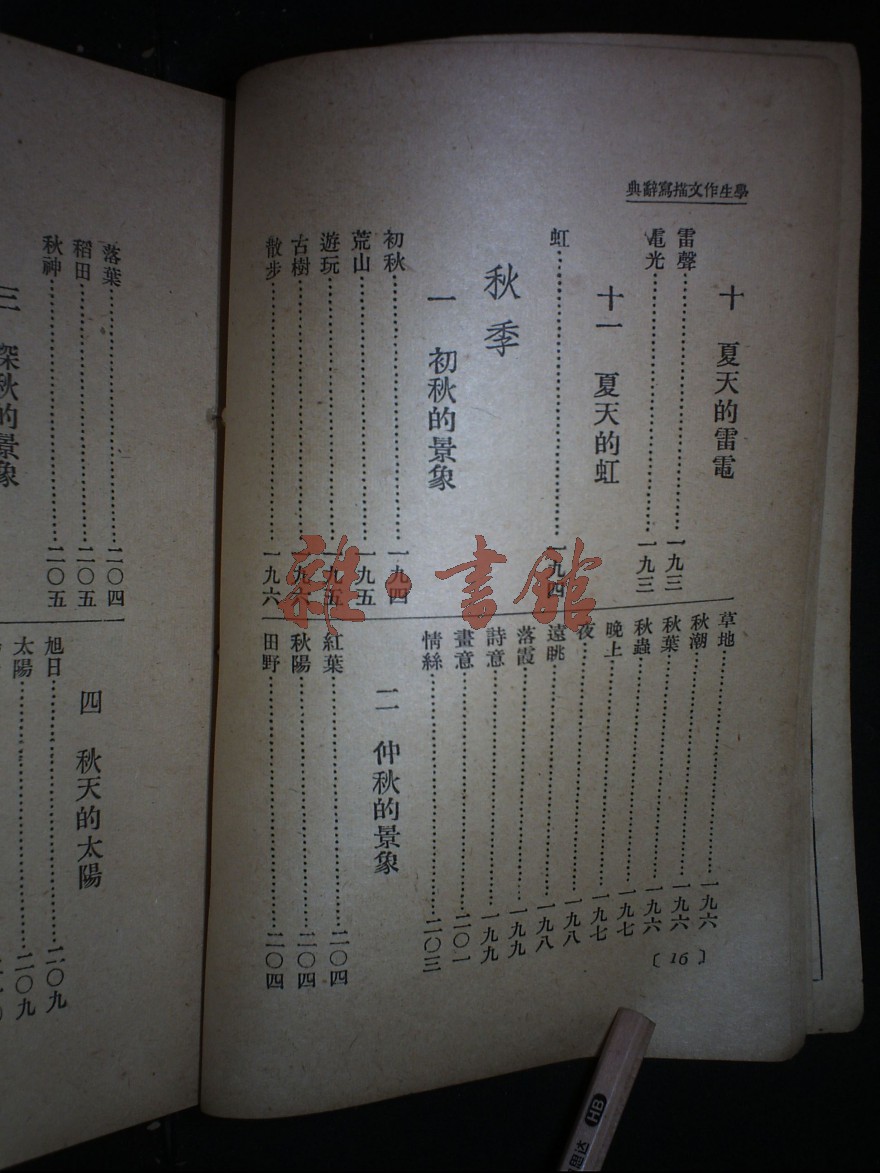 學生作文描寫辭典
十　夏天的雷電
雷聲……一九三
電光……一九三
十一　夏天的虹
虹……一九四
秋季
一　初秋的景象
初秋……一九四
荒山……一九五
遊玩……一九五
古樹……一九六
散步……一九六
草地……一九六
秋潮……一九六
秋葉……一九六
秋蟲……一九七
晚上……一九七
夜……一九八
遠眺……一九八
落霞……一九九
詩意……一九九
畫意……二〇一
情絲……二〇三
二　仲秋的景象
紅葉……二〇四
秋陽……二〇四
田野……二〇四
〔16〕
落葉……二〇四
稻田……二〇五
秋神……二〇五
三　深秋的景象
四　秋天的太陽
旭日……二〇九
太陽……二〇九
雜·書館
思达 HB